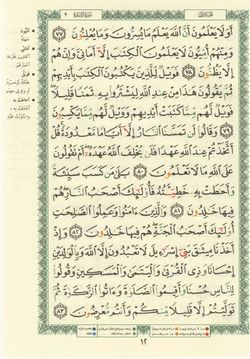 الجزء الأول سورة البقرة ٢
أَوَلَا يَعْلَمُونَ أَنَّ ٱللَّهَ يَعْلَمُ مَا يُسِرُّونَ وَمَا يُعْلِنُونَ ٧٧
وَمِنْهُمْ أُمِّيُّونَ لَا يَعْلَمُونَ ٱلْكِتَٰبَ إِلَّآ أَمَانِىَّ وَإِنْ هُمْ
إِلَّا يَظُنُّونَ ٧٨ فَوَيْلٌ لِّلَّذِينَ يَكْتُبُونَ ٱلْكِتَٰبَ بِأَيْدِيهِمْ
ثُمَّ يَقُولُونَ هَٰذَا مِنْ عِندِ ٱللَّهِ لِيَشْتَرُوا۟ بِهِۦ ثَمَنًا قَلِيلًا
فَوَيْلٌ لَّهُم مِّمَّا كَتَبَتْ أَيْدِيهِمْ وَوَيْلٌ لَّهُم مِّمَّا يَكْسِبُونَ
٧٩ وَقَالُوا۟ لَن تَمَسَّنَا ٱلنَّارُ إِلَّآ أَيَّامًا مَّعْدُودَةً قُلْ
أَتَّخَذْتُمْ عِندَ ٱللَّهِ عَهْدًا فَلَن يُخْلِفَ ٱللَّهُ عَهْدَهُۥٓ أَمْ تَقُولُونَ
عَلَى ٱللَّهِ مَا لَا تَعْلَمُونَ ٨٠ بَلَىٰ مَن كَسَبَ سَيِّئَةً
وَأَحَٰطَتْ بِهِۦ خَطِيٓـَٔتُهُۥ فَأُو۟لَٰٓئِكَ أَصْحَٰبُ ٱلنَّارِ هُمْ
فِيهَا خَٰلِدُونَ ٨١ وَٱلَّذِينَ ءَامَنُوا۟ وَعَمِلُوا۟ ٱلصَّٰلِحَٰتِ
أُو۟لَٰٓئِكَ أَصْحَٰبُ ٱلْجَنَّةِ هُمْ فِيهَا خَٰلِدُونَ ٨٢ وَإِذْ
أَخَذْنَا مِيثَٰقَ بَنِىٓ إِسْرَٰٓءِيلَ لَا تَعْبُدُونَ إِلَّا ٱللَّهَ وَبِٱلْوَٰلِدَيْنِ
إِحْسَانًا وَذِى ٱلْقُرْبَىٰ وَٱلْيَتَٰمَىٰ وَٱلْمَسَٰكِينِ وَقُولُوا۟
لِلنَّاسِ حُسْنًا وَأَقِيمُوا۟ ٱلصَّلَوٰةَ وَءَاتُوا۟ ٱلزَّكَوٰةَ ثُمَّ
تَوَلَّيْتُمْ إِلَّا قَلِيلًا مِّنكُمْ وَأَنتُم مُّعْرِضُونَ ٨٣
١٢